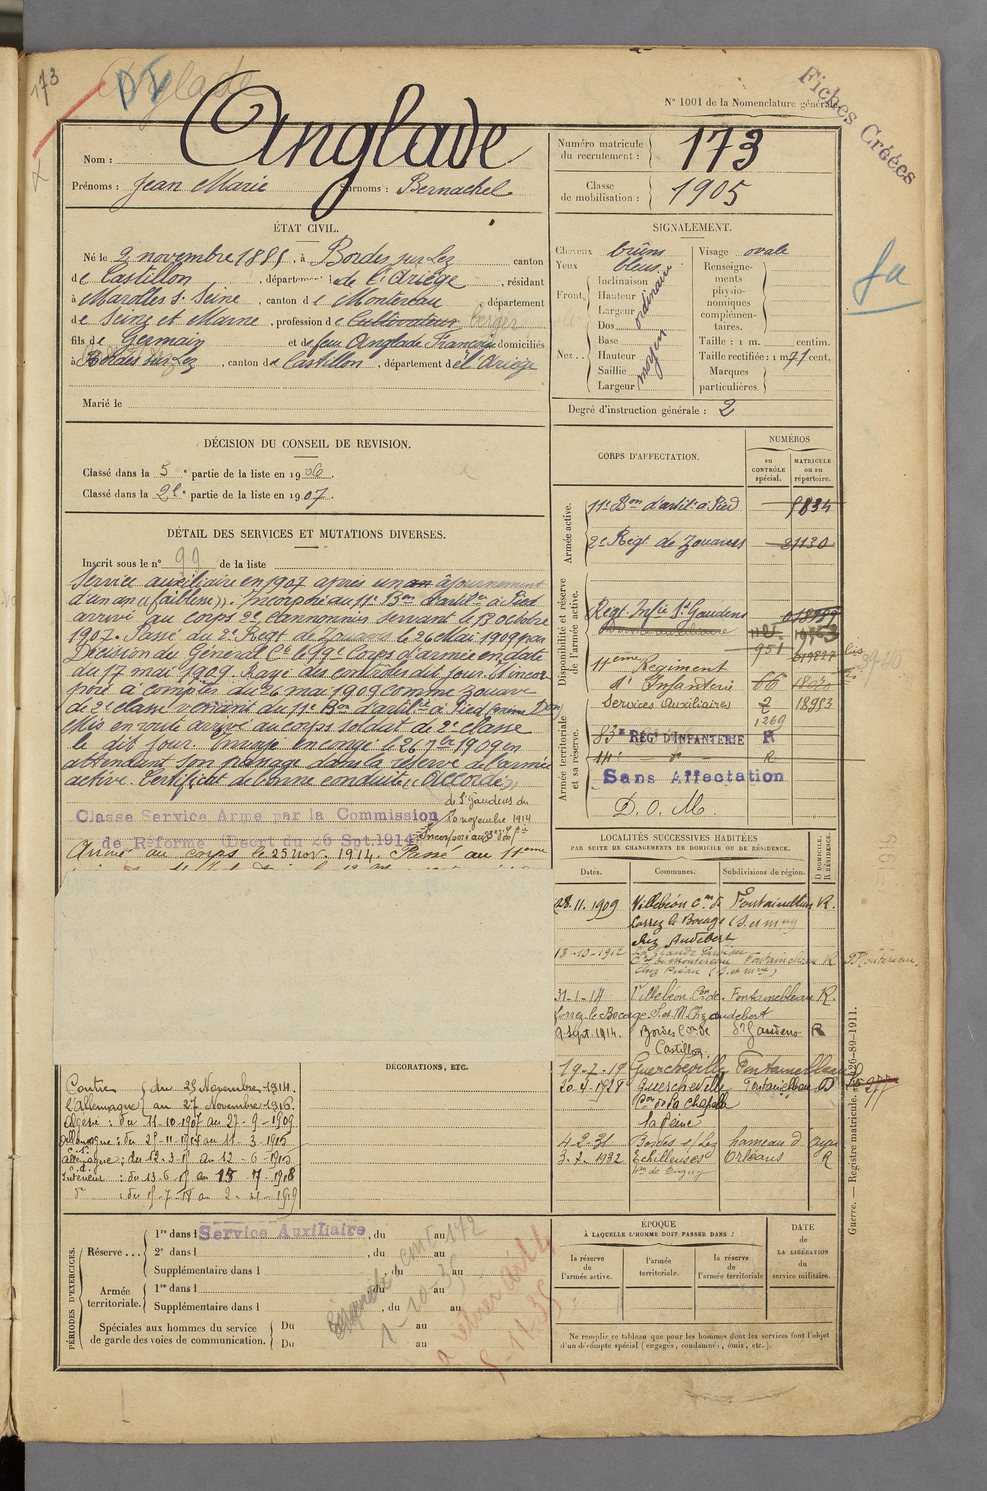 173
Anglade
Fiches Créées
N° 1001 de la Nomenclature générale.
Nom : Anglade
Prénoms : Jean Marie Surnoms : Bernachel
Numéro matricule du recrutement : 173
Classe de mobilisation : 1905
ÉTAT CIVIL.
Né le 2 novembre 1885, à Bordes sur Lez canton
de Castillon, département de l'Ariège, résidant
à Marolles s. Seine, canton de Montereau, département
de Seine et Marne, profession de Cultivateur berger
fils de Germain et de feu Anglade Françoise domiciliés
à Bordes sur Lez, canton de Castillon, département de l'Ariège
Marié le
SIGNALEMENT.
Cheveux bruns
Yeux bleus
Front
Inclinaison
Hauteur
Largeur
ordinaire
Dos
Nez
Base
Hauteur
Saillie
Largeur
moyen
Visage ovale
Renseignements physionomiques complémentaires.
Taille : 1 m. centim.
Taille rectifiée : 1 m 71 cent.
Marques particulières
Degré d'instruction générale : 2
DÉCISION DU CONSEIL DE REVISION.
Classé dans la 5e partie de la liste en 1906.
Classé dans la 2e partie de la liste en 1907.
DÉTAIL DES SERVICES ET MUTATIONS DIVERSES.
Inscrit sous le n° 99 de la liste
Service auxiliaire en 1907 après un an ajournement
d'un an (faiblesse). Incorporé au 11e Bon d'artie à Pied
arrivé au corps 2e Cannonnier servant le 13 octobre
1907. Passé au 2e Régt de Zouaves le 26 Mai 1909 par
Décision du Général Ct le 19e Corps d'armée en date
du 17 mai 1909. Rayé des contrôles dit jour. Et incor-
poré à compter du 26 mai 1909 comme zouave
de 2e classe venant du 11e Bon d'artie à Pied
Mis en route arrivé au corps soldat de 2e classe
le dit jour. Envoyé en congé le 26 7bre 1909 en
attendant son passage dans la réserve de l'armée
active. Certificat de bonne conduite "Accordé"
Classé Service Armé par la Commission
de St Gaudens du
novembre 1914
de Réforme (Décret du 26 Spt. 1914)
Arrivé au corps le 25 Nov. 1914. Passé au 11eme
CORPS D'AFFECTATION.
NUMÉROS
au CONTRÔLE spécial.
MATRICULE ou au répertoire.
Armée active.
11e Bon d'artie à Pied 8834
2e Régt de Zouaves 21130
Disponibilité et réserve de l'armée active.
Régt Infie St Gaudens
951
11eme Régiment
d'Infanterie 66
Services Auxiliaires 2 18953
1269
Armée territoriale et sa réserve.
83e RÉGt D'INFANTERIE R
14e - do - R
Sans Affectation
D. O. M.
LOCALITÉS SUCCESSIVES HABITÉES
PAR SUITE DE CHANGEMENTS DE DOMICILE OU DE RÉSIDENCE.
Dates. Communes. Subdivisions de région. D DOMICILE. R RÉSIDENCE.
28.11.1909 Villebéon Con de Fontainebleau R.
Lorrez le Bocage
chez Audebert
18-10-1912 Fontainebleau R
31-1-14 Villebéon Con de Fontainebleau R.
Lorrez-le-Bocage S. et M. Chez Audebert
9 Sept. 1914. Bordes Con de St Gaudens R
Castillon.
19-7-19 Guercheville Fontainebleau
20-4-1928 Guercheville Fontainebleau D
Con de La Chapelle
la Reine
4-2-31 Bordes s/ Lez hameau d'Ayer
3-2-1932 Echilleuses Orléans R
DÉCORATIONS, ETC.
Contre l'Allemagne { du 25 Novembre 1914.
au 27 Novembre 1916.
Algérie : du 11-10-1907 au 27-9-1909
Allemagne : du 25-11-1914 au 11-3-1915
Allemagne : du 12-3-15 au 12-6-1915
Intérieur : du 13-6-15 au 15-7-1918
PÉRIODES D'EXERCICES.
Réserve...
1re dans l Service Auxiliaire, du au
2e dans l , du au
Supplémentaire dans l , du au
Armée territoriale.
1re dans l , du au
Supplémentaire dans l , du au
Spéciales aux hommes du service de garde des voies de communication.
Du au
Du au
1-10-35
ÉPOQUE
À LAQUELLE L'HOMME DOIT PASSER DANS :
la réserve de l'armée active.
l'armée territoriale.
la réserve de l'armée territoriale
DATE de LA LIBÉRATION du service militaire.
Ne remplir ce tableau que pour les hommes dont les services font l'objet
d'un décompte spécial (engagés, condamnés, omis, etc.).
Guerre. — Registre matricule. 126-89-1911.